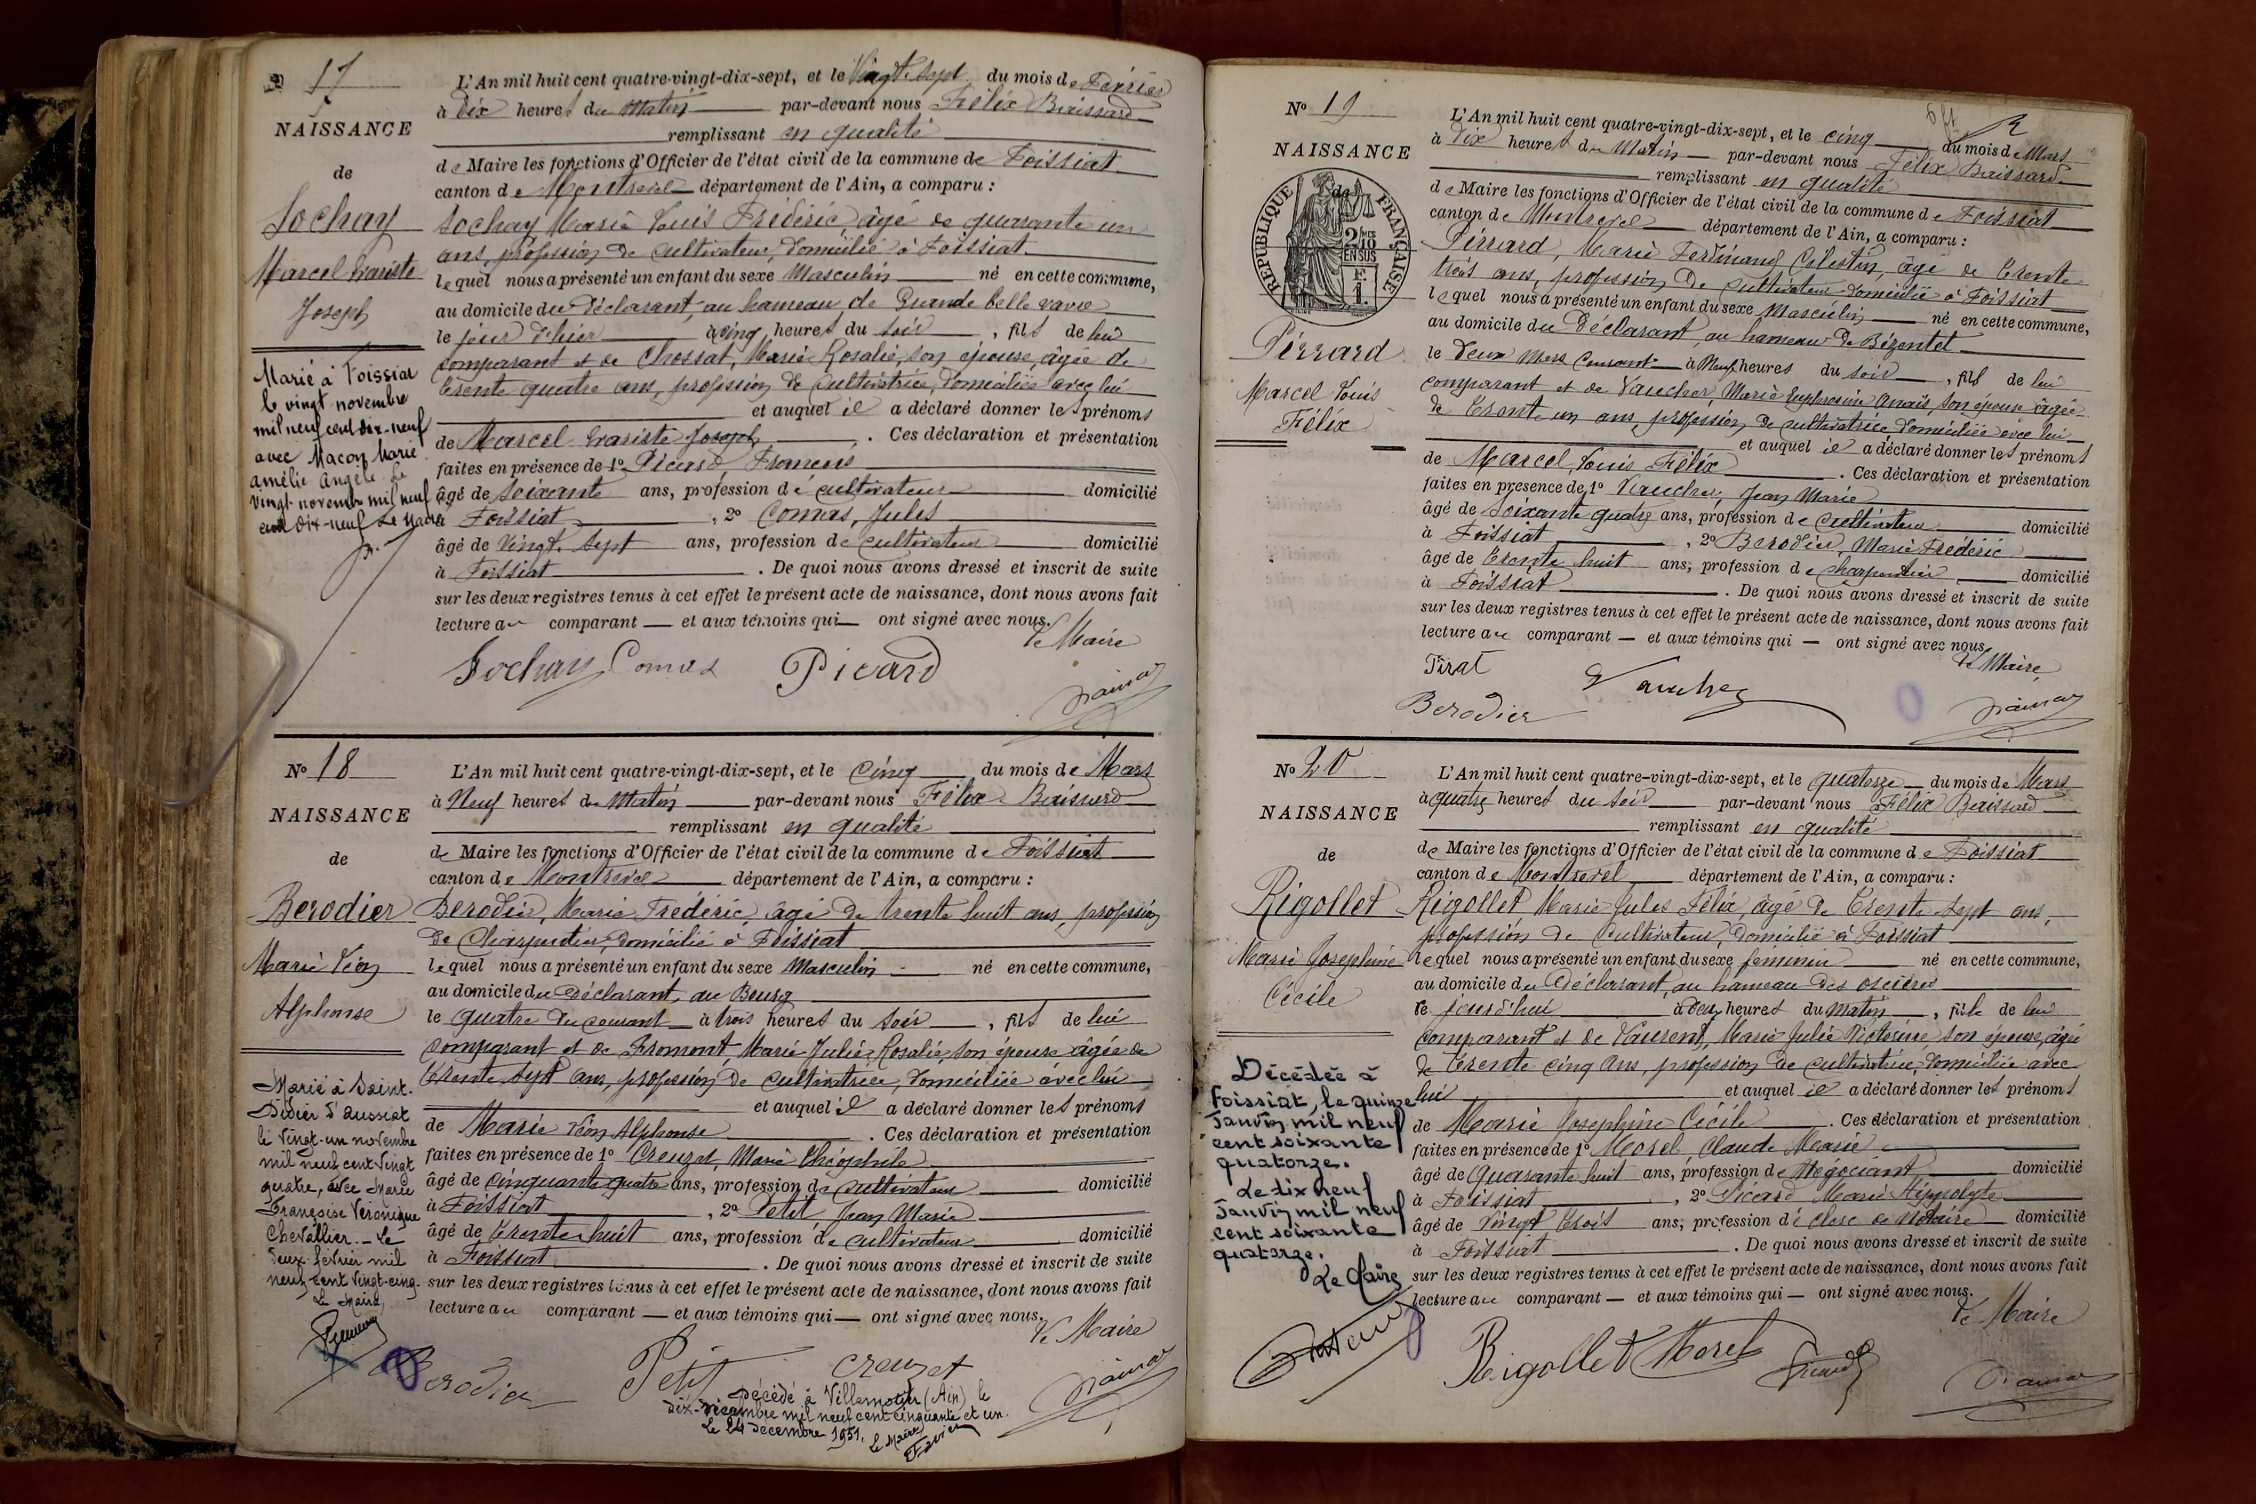 No 17
NAISSANCE
de
Sochay
Marcel Evariste
Joseph
Marié à Foissiat
le vingt novembre
mil neuf cent dix-neuf
avec Maçon Marie
amélie Angèle Le
vingt novembre mil neuf
cent dix-neuf Le Maire
L'An mil huit cent quatre-vingt-dix-sept, et le Vingt Sept du mois de Février
à Dix heures du Matin par-devant nous Félix Braissard
remplissant en qualité
de Maire les fonctions d'Officier de l'état civil de la commune de Foissiat
canton de Montrevel département de l'Ain, a comparu :
Sochay Marie Louis Frédéric, âgé de quarante un
ans, profession de cultivateur, domicilié à Foissiat
lequel nous a présenté un enfant du sexe Masculin né en cette commune,
au domicile du Déclarant, au hameau de Grande belle vavre
le jour d'hier à cinq heures du soir, fils de lui
comparant et de Chossat, Marie Rosalie, son épouse, âgée de
trente quatre ans, profession de cultivatrice, domiciliée avec lui
et auquel il a déclaré donner les prénoms
de Marcel Evariste Joseph. Ces déclaration et présentation
faites en présence de 1º Picard, François
âgé de soixante ans, profession de cultivateur domicilié
à Foissiat, 2º Comas, Jules
âgé de Vingt Sept ans, profession de cultivateur domicilié
à Foissiat. De quoi nous avons dressé et inscrit de suite
sur les deux registres tenus à cet effet le présent acte de naissance, dont nous avons fait
lecture au comparant — et aux témoins qui — ont signé avec nous.
Le Maire
Sochay Comas Picard
No 18
NAISSANCE
de
Berodier
Marie Léon
Alphonse
Marié à Saint-
Didier d'Aussiat
le vingt-un novembre
mil neuf cent vingt
quatre, avec Marie
Françoise Véronique
Chevallier. — Le
deux février mil
neuf-cent vingt-cinq.
Le Maire
L'An mil huit cent quatre-vingt-dix-sept, et le cinq du mois de Mars
à Neuf heures du Matin par-devant nous Félix Braissard
remplissant en qualité
de Maire les fonctions d'Officier de l'état civil de la commune de Foissiat
canton de Montrevel département de l'Ain, a comparu :
Berodier, Marie Frédéric, âgé de trente huit ans, profession
de Charpentier, domicilié à Foissiat
lequel nous a présenté un enfant du sexe Masculin né en cette commune,
au domicile du Déclarant, au Bourg
le quatre du courant à trois heures du soir, fils de lui
comparant et de Fromont, Marie Julie Rosalie, son épouse âgée de
trente sept ans, profession de cultivatrice, domiciliée avec lui
et auquel il a déclaré donner les prénoms
de Marie Léon Alphonse. Ces déclaration et présentation
faites en présence de 1º Creuzet, Marie Théophile
âgé de cinquante quatre ans, profession de cultivateur domicilié
à Foissiat, 2º Petit Jean Marie
âgé de trente huit ans, profession de cultivateur domicilié
à Foissiat. De quoi nous avons dressé et inscrit de suite
sur les deux registres tenus à cet effet le présent acte de naissance, dont nous avons fait
lecture au comparant — et aux témoins qui — ont signé avec nous.
Le Maire
Berodier Petit Creuzet
Décédé à Villemotier (Ain) le
dix-décembre mil neuf cent cinquante et un.
Le 24 décembre 1951. Le Maire
No 19
NAISSANCE
de
RÉPUBLIQUE FRANÇAISE
2/10 EN SUS
F. 1.
Pirrard
Marcel Louis
Félix
L'An mil huit cent quatre-vingt-dix-sept, et le cinq du mois de Mars
à Dix heures du Matin par-devant nous Félix Braissard
remplissant en qualité
de Maire les fonctions d'Officier de l'état civil de la commune de Foissiat
canton de Montrevel département de l'Ain, a comparu :
Pirrard, Marie Ferdinand Célestin, âgé de trente
trois ans, profession de cultivateur domicilié à Foissiat
lequel nous a présenté un enfant du sexe Masculin né en cette commune,
au domicile du Déclarant, au hameau de Bézentet
le deux Mars courant à Neuf heures du soir, fils de lui
comparant et de Vaucher, Marie Euphrosine Anaïs, son épouse âgée
de trente un ans, profession de cultivatrice domiciliée avec lui
et auquel il a déclaré donner les prénoms
de Marcel Louis Félix. Ces déclaration et présentation
faites en présence de 1º Vaucher, Jean Marie
âgé de soixante quatre ans, profession de cultivateur domicilié
à Foissiat, 2º Berodier, Marie Frédéric
âgé de trente huit ans, profession de charpentier domicilié
à Foissiat. De quoi nous avons dressé et inscrit de suite
sur les deux registres tenus à cet effet le présent acte de naissance, dont nous avons fait
lecture au comparant — et aux témoins qui — ont signé avec nous.
Le Maire
Vaucher
Berodier
No 20
NAISSANCE
de
Rigollet
Marie Josephine
Cécile
Décédée à
Foissiat, le quinze
Janvier mil neuf
cent soixante
quatorze.
Le dix neuf
Janvier mil neuf
cent soixante
quatorze.
Le Maire
L'An mil huit cent quatre-vingt-dix-sept, et le quatorze du mois de Mars
à quatre heures du soir par-devant nous Félix Braissard
remplissant en qualité
de Maire les fonctions d'Officier de l'état civil de la commune de Foissiat
canton de Montrevel département de l'Ain, a comparu :
Rigollet Marie Jules Félix, âgé de trente sept ans,
profession de cultivateur, domicilié à Foissiat
lequel nous a présenté un enfant du sexe féminin né en cette commune,
au domicile du Déclarant, au hameau des oscières
le jourd'hui à deux heures du matin, fille de lui
comparant et de Laurent, Marie Julie Victorine, son épouse, âgée
de trente cinq ans, profession de cultivatrice, domiciliée avec
lui et auquel il a déclaré donner les prénoms
de Marie Josephine Cécile. Ces déclaration et présentation
faites en présence de 1º Morel Claude Marie
âgé de quarante huit ans, profession de Négociant domicilié
à Foissiat, 2º Picard Marie Hippolyte
âgé de vingt trois ans, profession de clerc de notaire domicilié
à Foissiat. De quoi nous avons dressé et inscrit de suite
sur les deux registres tenus à cet effet le présent acte de naissance, dont nous avons fait
lecture au comparant — et aux témoins qui — ont signé avec nous.
Le Maire
Rigollet Morel